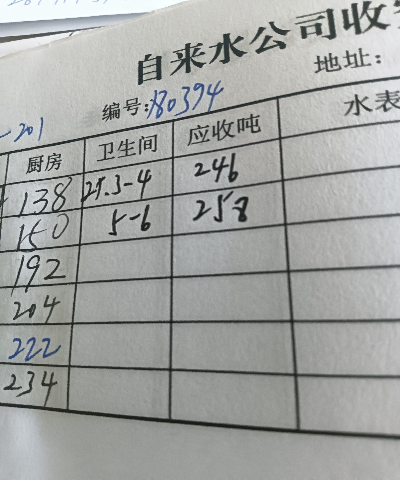 自来水公司收
编号:180394 地址:
-201
厨房 卫生间 应收吨 水表
138 25.3-4 246
150 5-6 258
192
204
222
234